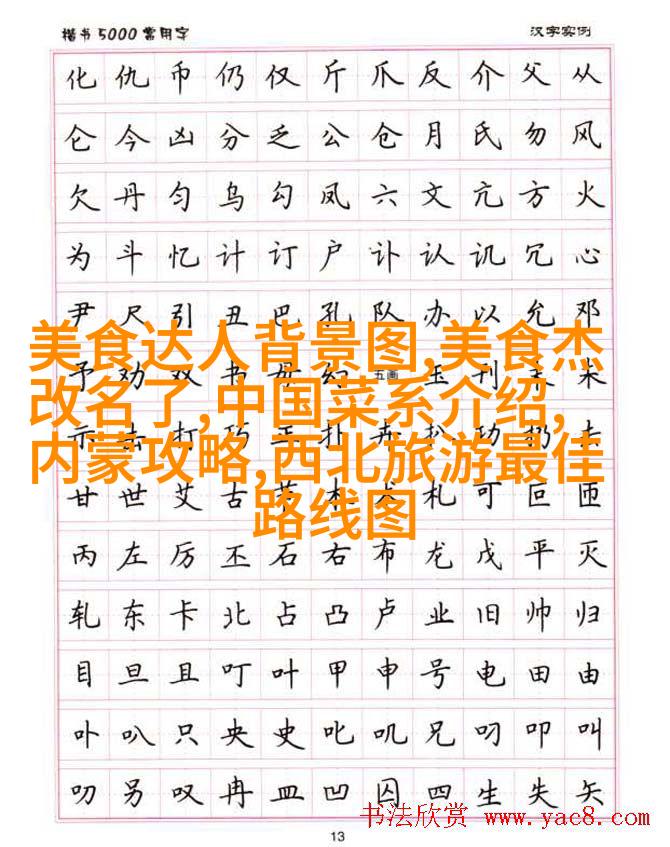 楷书5000常用字 汉字实例
化 仇 币 仍 仅 斤 爪 反 介 父 从
仑 今 凶 分 乏 公 仓 月 氏 勿 风
欠 丹 匀 乌 勾 凤 六 文 亢 方 火
为 斗 忆 计 订 户 讣 认 讥 冗 心
尹 尺 引 丑 巴 孔 队 办 以 允 邓
予 劝 双 书 毋 幻 五画 玉 刊 末
美食达人背景图,美食杰
改名了,中国菜系介绍,
内蒙攻略,西北旅游最佳
路线图
示 击 打 巧 扑 功 扔 去
甘 世 艾 古 本 札 可 叵 匝
丙 左 厉 丕 石 右 布 龙 戊 平 灭
轧 东 卡 北 占 凸 卢 业 旧 帅 归
目 旦 且 叮 叶 甲 申 号 电 田 由
卟 叭 只 央 史 叱 叽 兄 叼 叩 叫
叨 另 叹 冉 皿 凹 囚 四 生 失 矢
书法欣赏 www.yac8.com
13